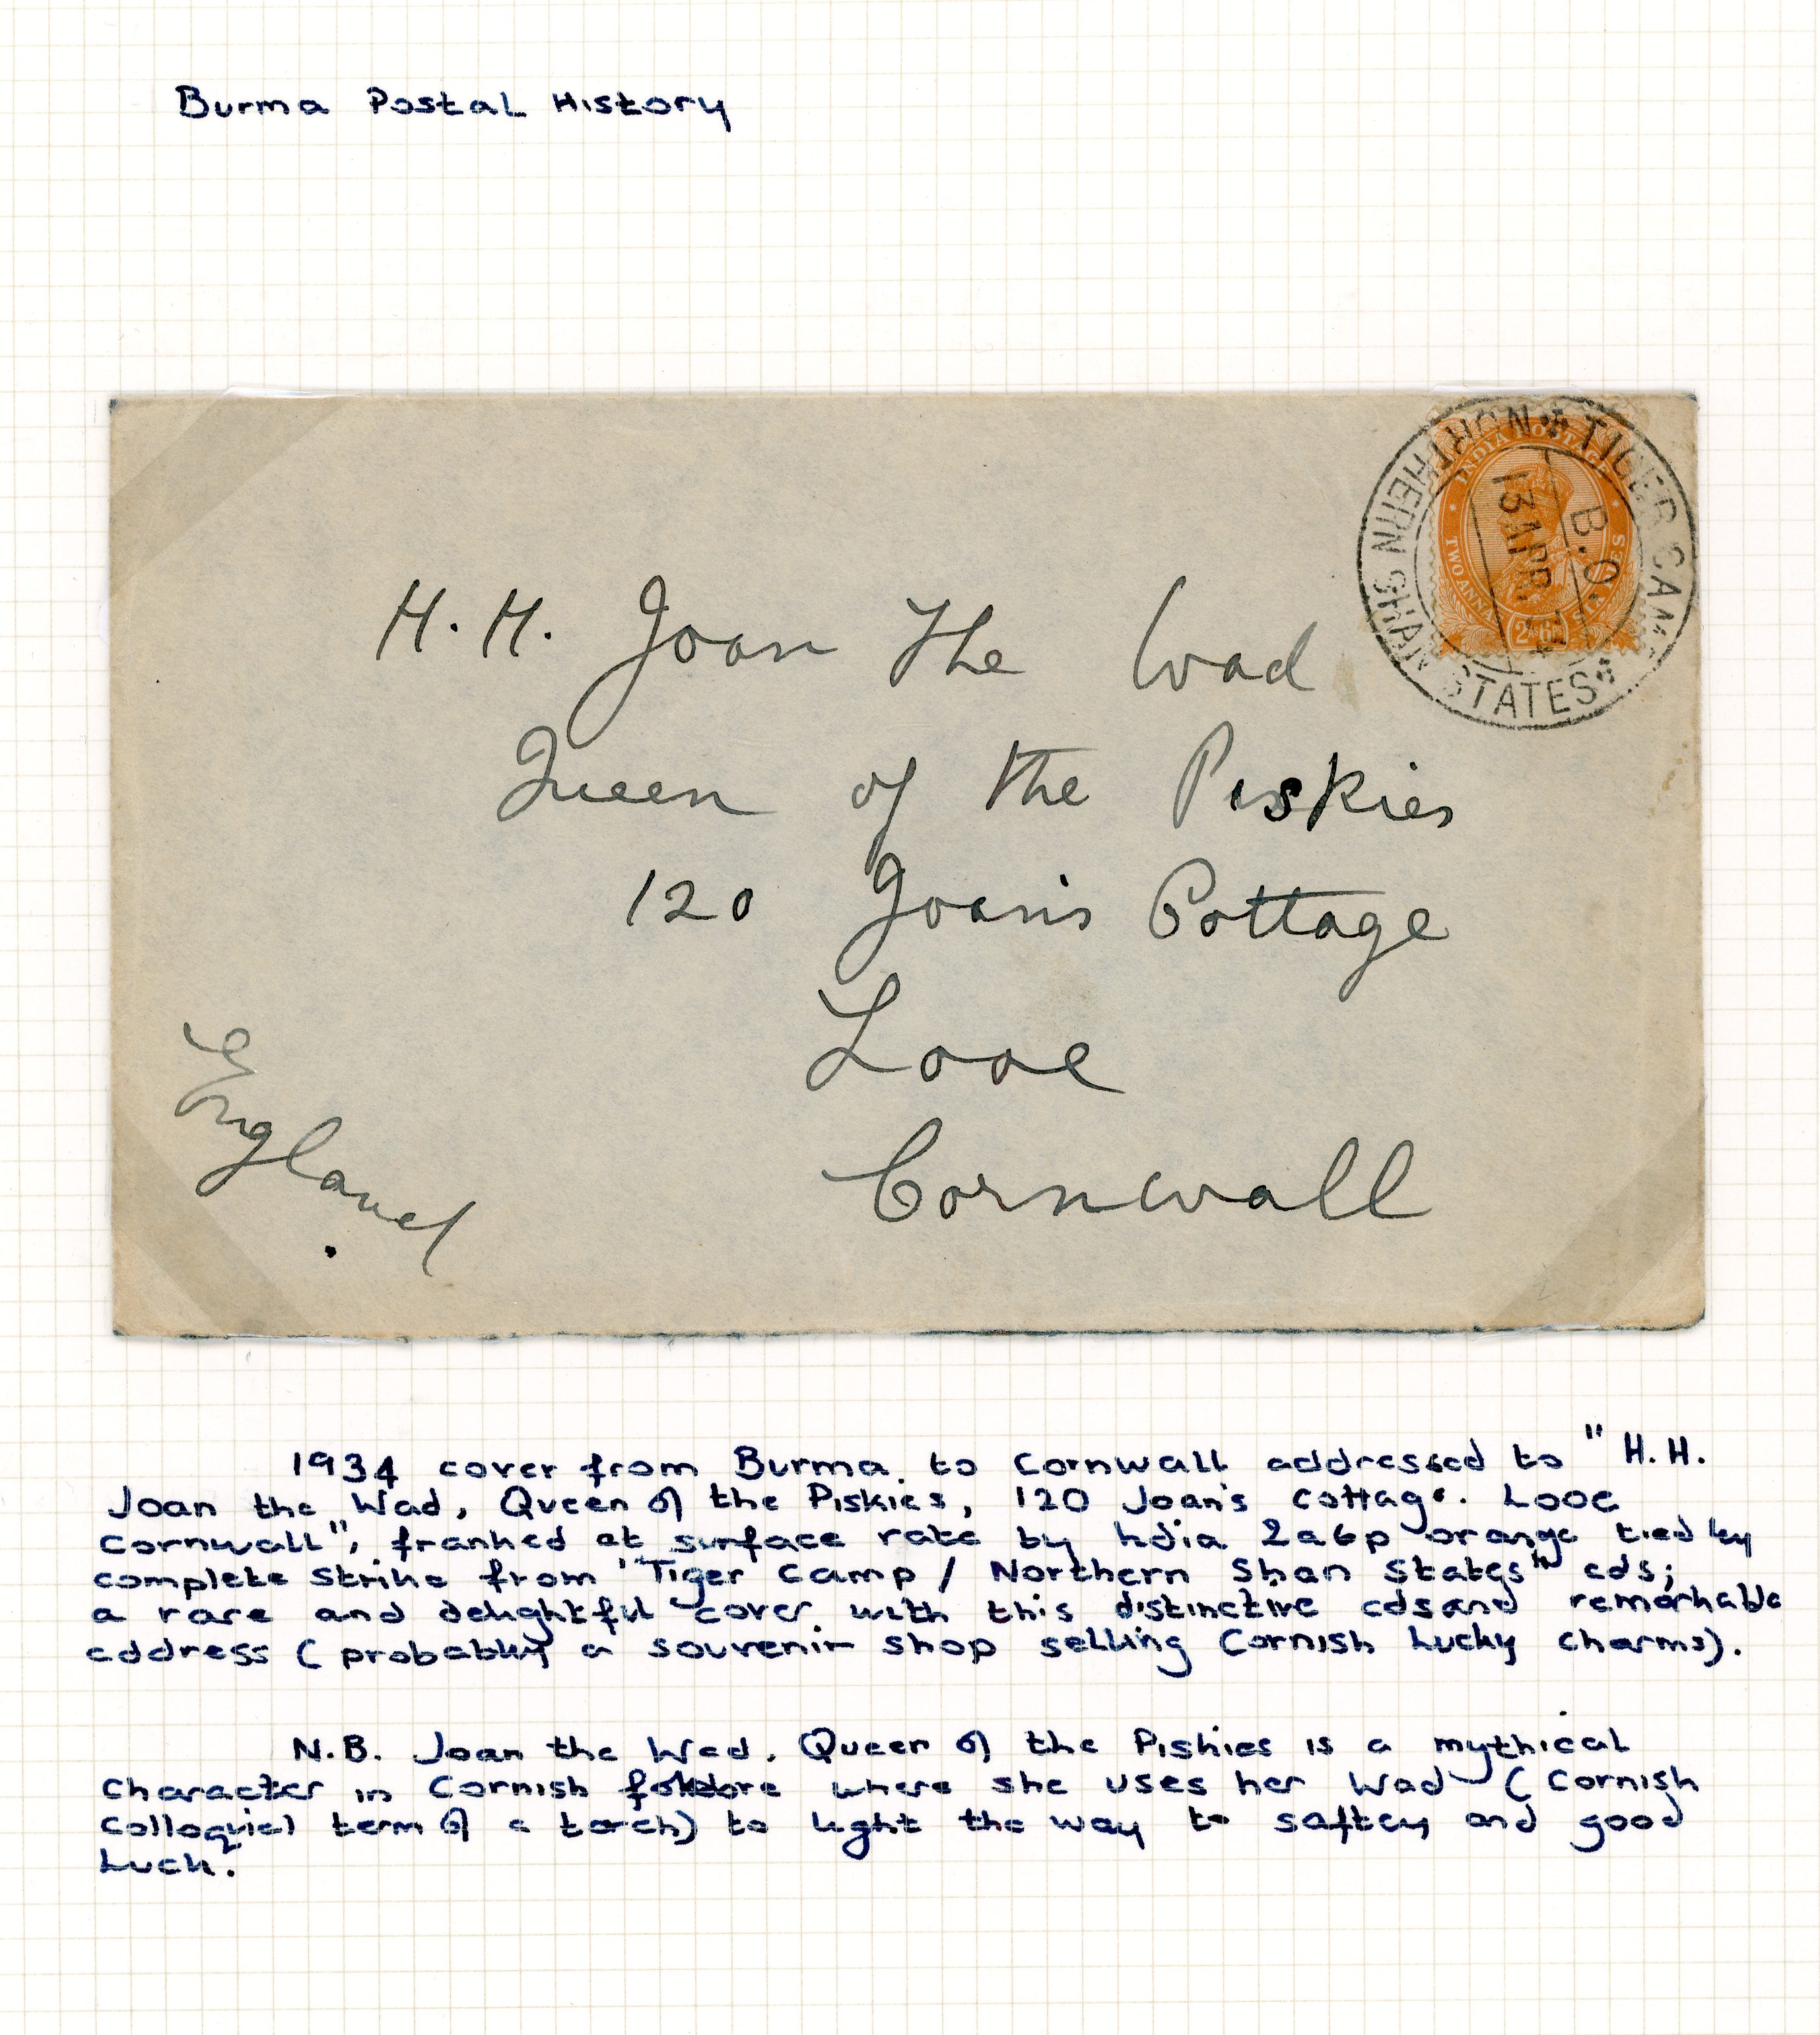 Burma Postal History
NORTHERN SHAN STATES
TIGER CAMP
B.O.
13 APR
INDIA POSTAGE
TWO ANNAS SIX PIES
2As6P
H. H. Joan The Wad
Queen of the Piskies
120 Joan's Cottage
Looe
Cornwall
England
1934 cover from Burma. to Cornwall addressed to "H.H.
Joan the Wad, Queen of the Piskies, 120 Joan's Cottage. Looe
Cornwall", franked at surface rate by India 2a6p orange tied by
complete strike from 'Tiger Camp / Northern Shan States" cds;
a rare and delightful cover with this distinctive cds and remarkable
address (probably a souvenir shop selling Cornish Lucky charms).
N.B. Joan the Wad. Queen of the Piskies is a mythical
character in Cornish folklore where she uses her Wad (Cornish
Colloquial term of a torch) to light the way to saftey and good
Luck.